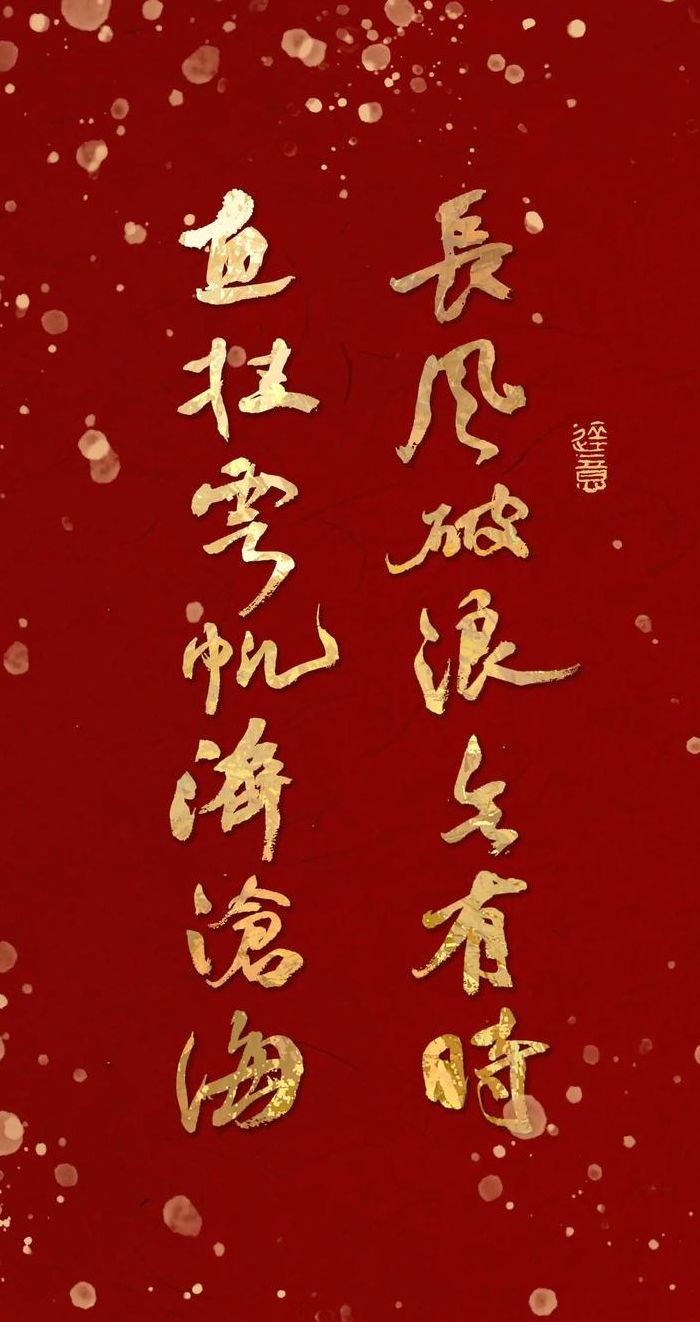 長風破浪会有時
直挂雲帆濟滄海